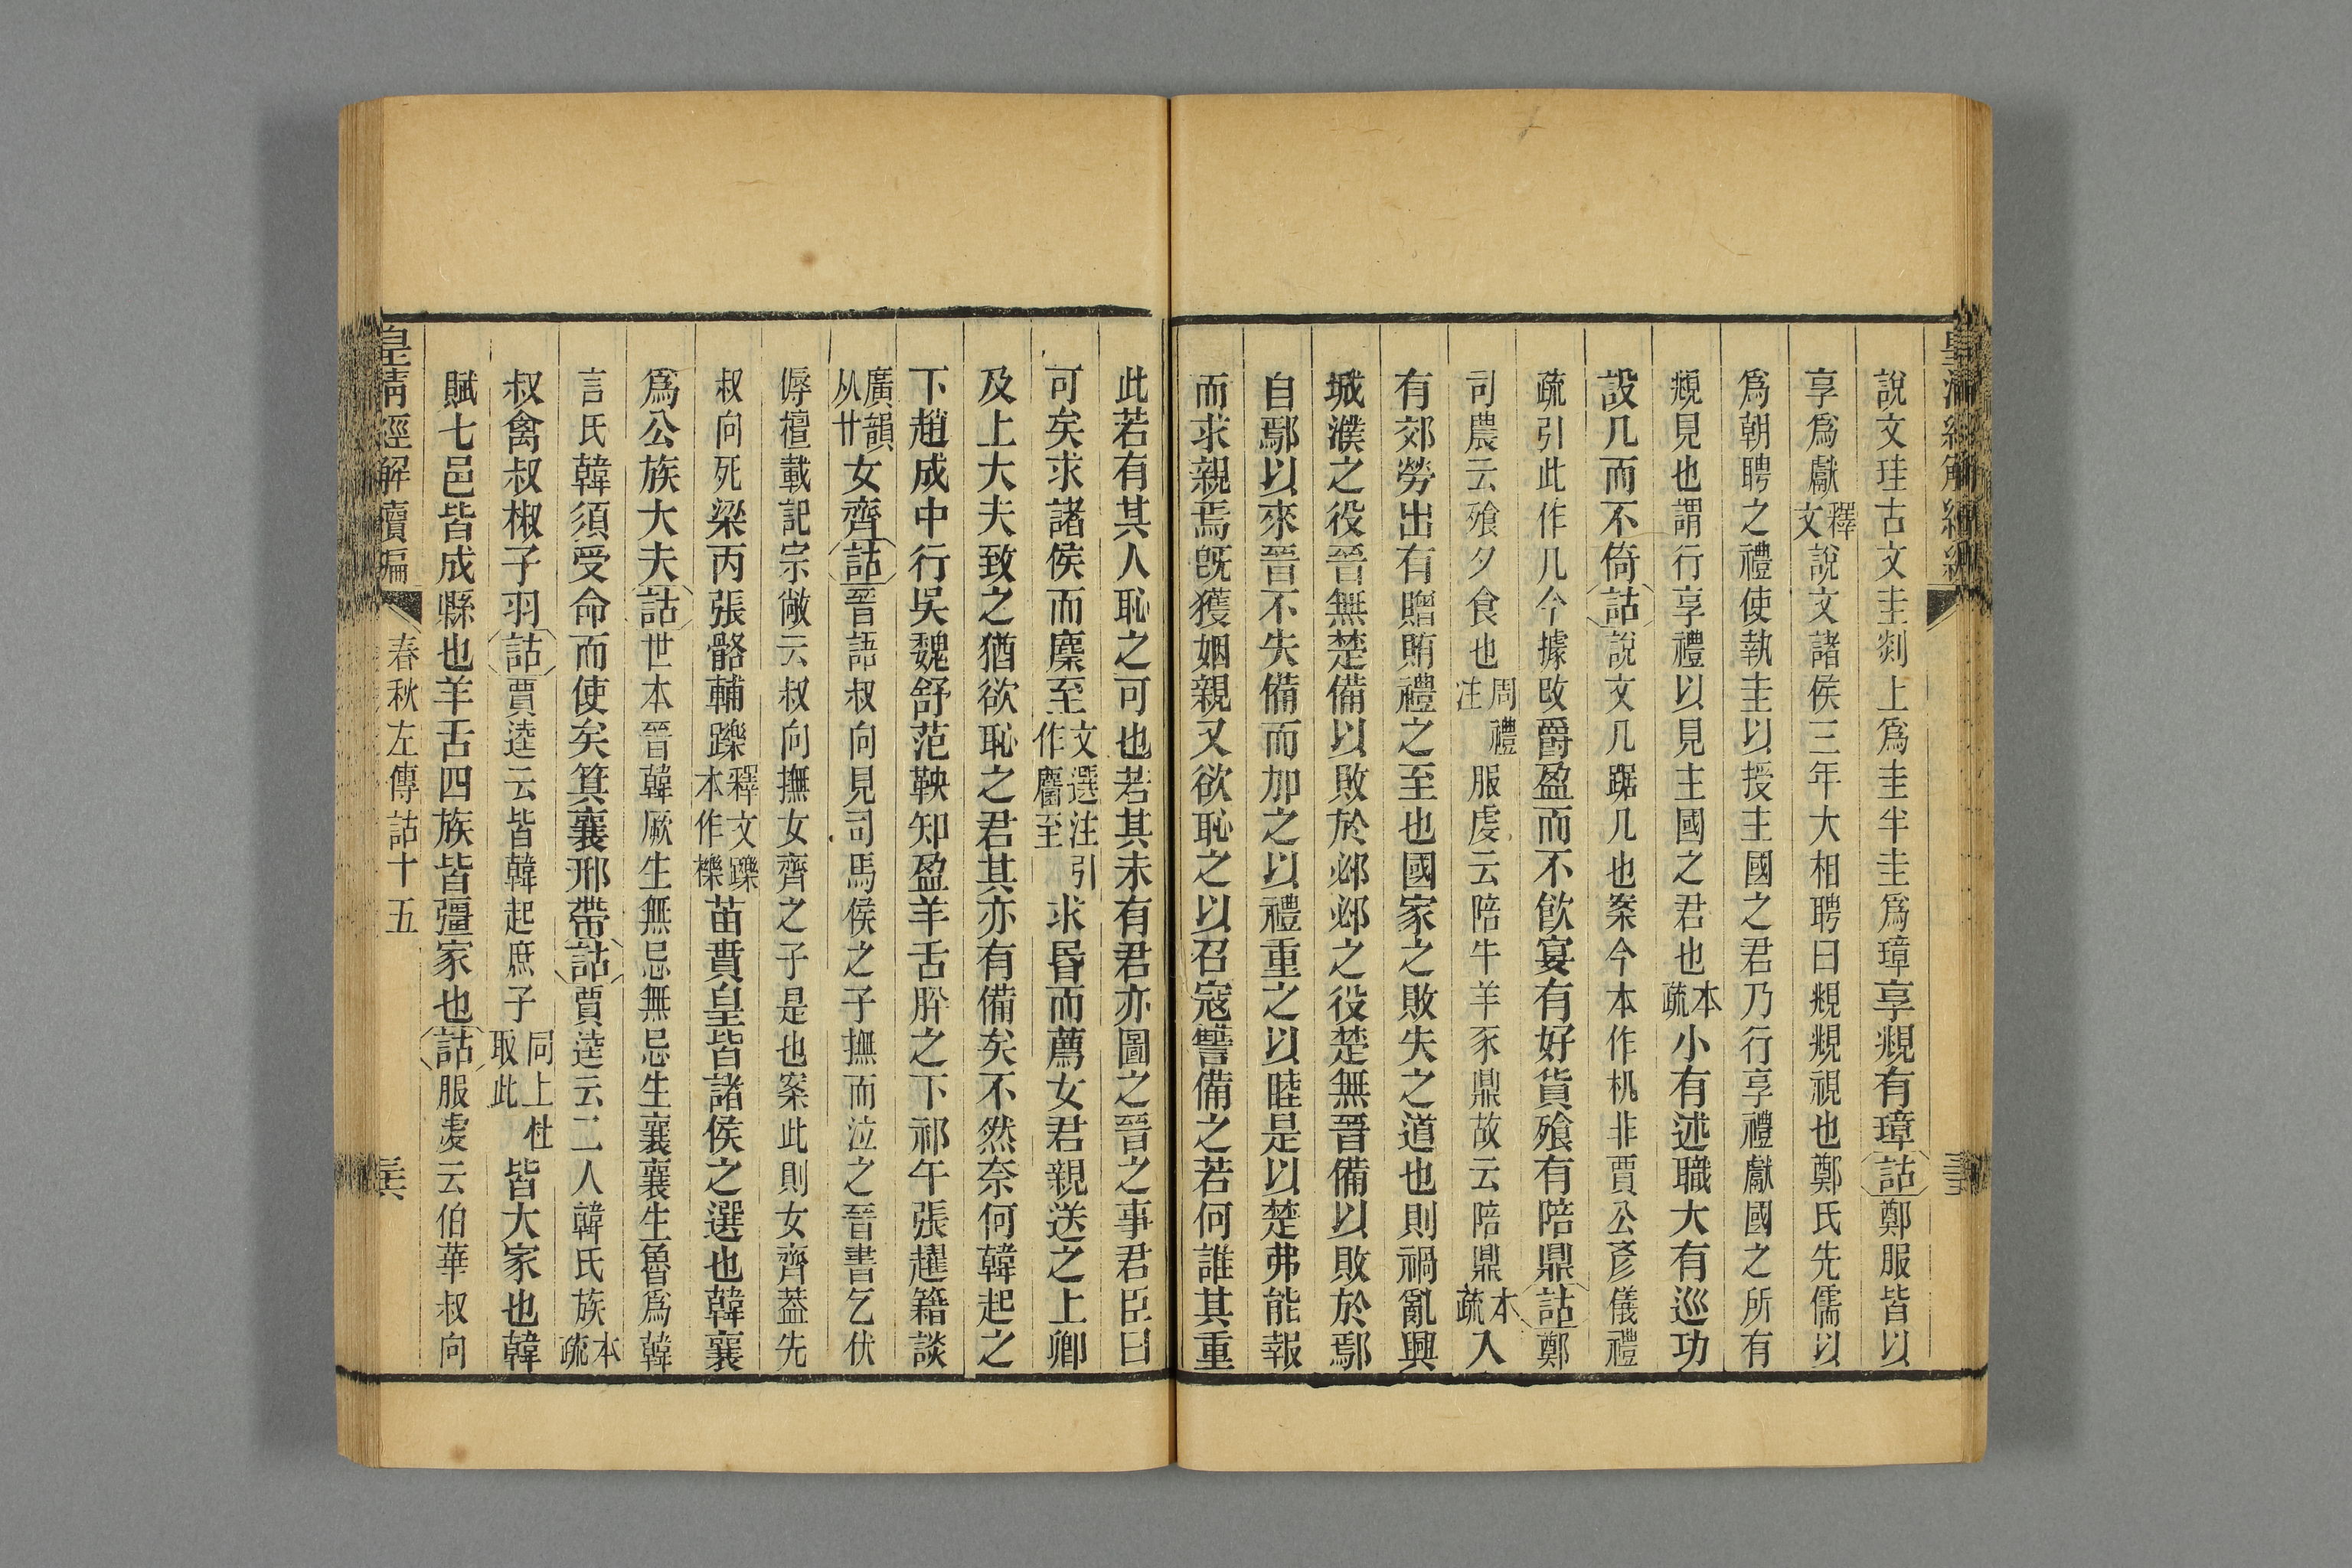 說文珪古文圭剡上爲圭半圭爲璋享覜有璋詁鄭服皆以
享爲獻釋文說文諸侯三年大相聘曰覜覜視也鄭氏先儒以
爲朝聘之禮使執圭以授主國之君乃行享禮獻國之所有
覜見也謂行享禮以見主國之君也本疏小有述職大有巡功
設几而不倚詁說文几踞几也案今本作机非賈公彥儀禮
疏引此作几今據改爵盈而不飮宴有好貨飧有陪鼎詁鄭
司農云飧夕食也周禮注服虔云陪牛羊豕鼎故云陪鼎本疏入
有郊勞出有贈賄禮之至也國家之敗失之道也則禍亂興
城濮之役晉無楚備以敗於邲邲之役楚無晉備以敗於鄢
自鄢以來晉不失備而加之以禮重之以睦是以楚弗能報
而求親焉旣獲姻親又欲恥之以召寇讐備之若何誰其重
此若有其人恥之可也若其未有君亦圖之晉之事君臣曰
可矣求諸侯而麇至文選注引作麕至求昬而薦女君親送之上卿
及上大夫致之猶欲恥之君其亦有備矣不然奈何韓起之
下趙成中行吳魏舒范鞅知盈羊舌肸之下祁午張趯籍談
廣韻从廿女齊詁晉語叔向見司馬侯之子撫而泣之晉書乞伏
傉檀載記宗敞云叔向撫女齊之子是也案此則女齊葢先
叔向死梁丙張骼輔躒釋文躒本作櫟苗賁皇皆諸侯之選也韓襄
爲公族大夫詁世本晉韓厥生無忌無忌生襄襄生魯爲韓
言氏韓須受命而使矣箕襄邢帶詁賈逵云二人韓氏族本疏
叔禽叔椒子羽詁賈逵云皆韓起庶子同上杜取此皆大家也韓
賦七邑皆成縣也羊舌四族皆彊家也詁服虔云伯華叔向
皇清經解續編 春秋左傳詁十五